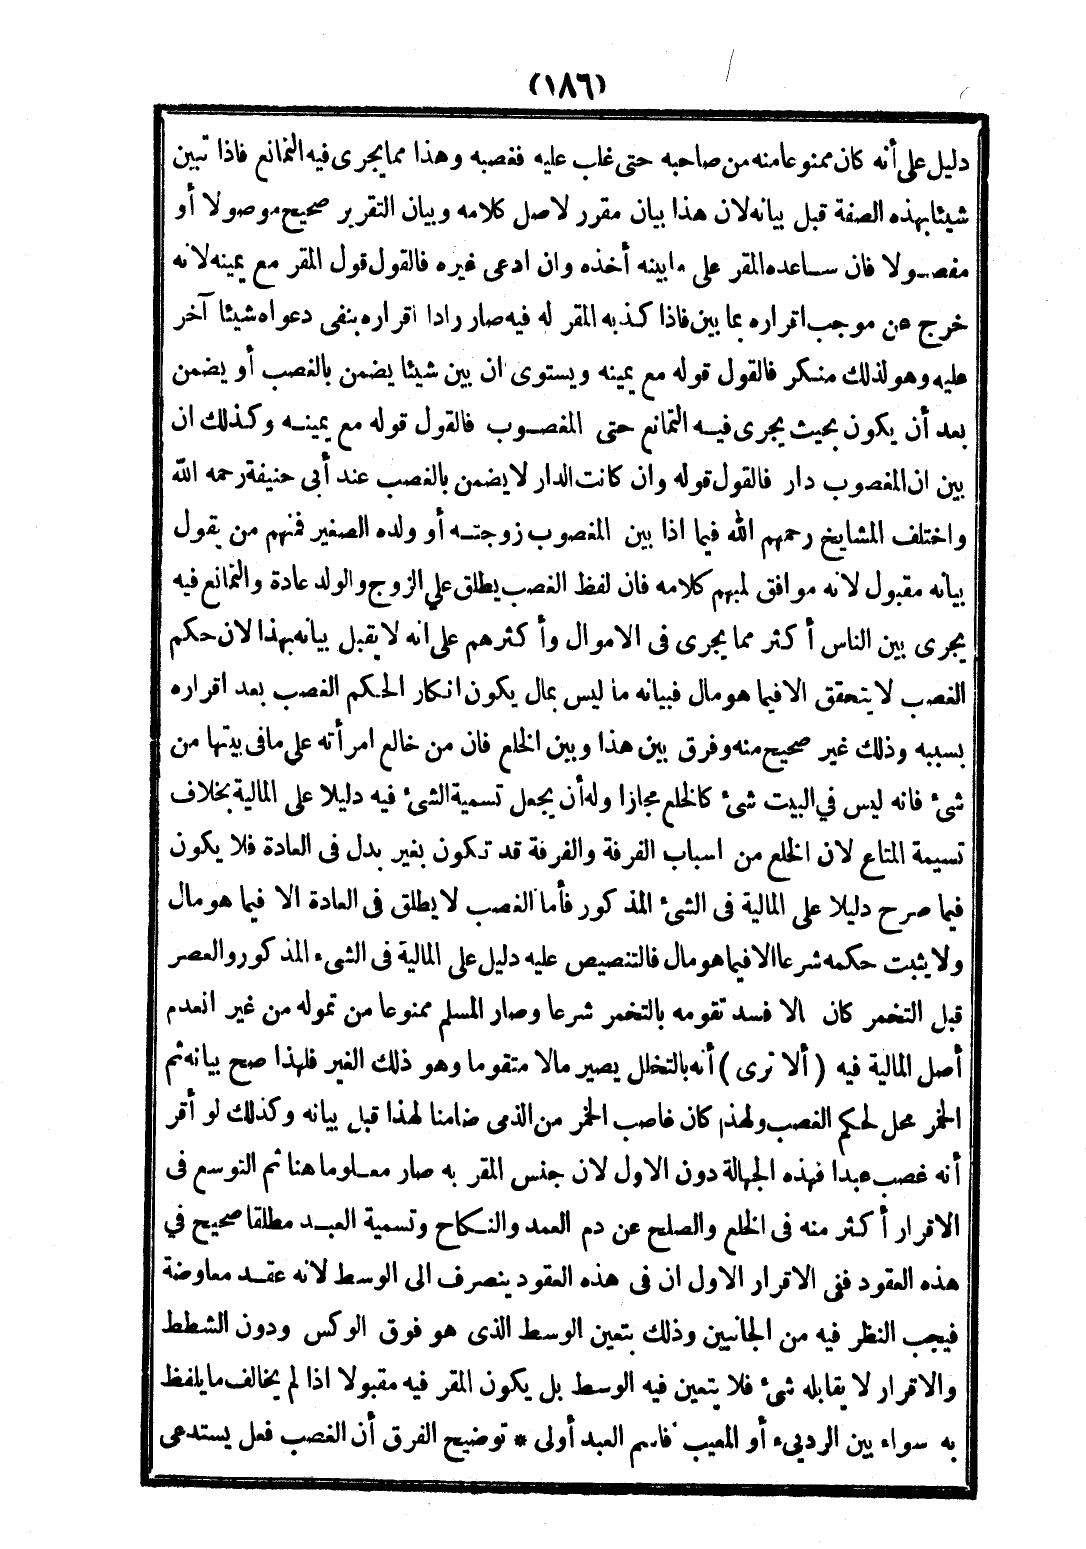 (١٨٦)
دليل على أنه كان ممنوعا منه من صاحبه حتى غلب عليه فغصبه وهذا مما يجرى فيه التمانع فاذا تبين
شيئا بهذه الصفة قبل بيانه لان هذا بيان مقرر لاصل كلامه وبيان التقرير صحيح موصولا أو
مفصولا فان ساعده المقر على ما بينه أخذه وان ادعى غيره فالقول قول المقر مع يمينه لانه
خرج عن موجب اقراره بما بين فاذا كذبه المقر له فيه صار رادا اقراره بنفى دعواه شيئا آخر
عليه وهو لذلك منكر فالقول قوله مع يمينه ويستوى ان بين شيئا يضمن بالغصب أو يضمن
بعد أن يكون بحيث يجرى فيه التمانع حتى المغصوب فالقول قوله مع يمينه وكذلك ان
بين ان المغصوب دار فالقول قوله وان كانت الدار لا يضمن بالغصب عند أبى حنيفة رحمه الله
واختلف المشايخ رحمهم الله فيما اذا بين المغصوب زوجته أو ولده الصغير فمنهم من يقول
بيانه مقبول لانه موافق لمبهم كلامه فان لفظ الغصب يطلق علي الزوج والولد عادة والتمانع فيه
يجرى بين الناس أكثر مما يجرى فى الاموال وأكثرهم على انه لا يقبل بيانه بهذا لان حكم
الغصب لا يتحقق الا فيما هو مال فبيانه ما ليس بمال يكون انكار الحكم الغصب بعد اقراره
بسببه وذلك غير صحيح منه وفرق بين هذا وبين الخلع فان من خالع امرأته علي ما فى بيتها من
شىء فانه ليس في البيت شىء كالخلع مجازا وله أن يجعل تسمية الشىء فيه دليلا على المالية بخلاف
تسيمة المتاع لان الخلع من اسباب الفرقة والفرقة قد تكون بغير بدل فى العادة فلا يكون
فيما صرح دليلا على المالية فى الشىء المذكور فأما الغصب لا يطلق فى العادة الا فيما هو مال
ولا يثبت حكمه شرعا الا فيما هو مال فالتنصيص عليه دليل على المالية فى الشىء المذكور والعصر
قبل التخمر كان الا فسد تقومه بالتخمر شرعا وصار المسلم ممنوعا من تموله من غير انعدم
أصل المالية فيه (ألا ترى) أنه بالتخلل يصير مالا متقوما وهو ذلك الغير فلهذا صح بيانه ثم
الخمر محل لحكم الغصب ولهذا كان غاصب الخمر من الذمى ضامنا لهذا قبل بيانه وكذلك لو أقر
أنه غصب عبدا فهذه الجهالة دون الاول لان جنس المقر به صار معلوما هنا ثم التوسع فى
الاقرار أكثر منه فى الخلع والصلح عن دم العمد والنكاح وتسمية العبد مطلقا صحيح في
هذه العقود ففى الاقرار الاول ان فى هذه العقود ينصرف الى الوسط لانه عقد معاوضة
فيجب النظر فيه من الجانبين وذلك بتعين الوسط الذى هو فوق الوكس ودون الشطط
والاقرار لا يقابله شىء فلا يتعين فيه الوسط بل يكون المقر فيه مقبولا اذا لم يخالف ما يلفظ
به سواء بين الرديىء أو المعيب فاسم العبد أولى * توضيح الفرق أن الغصب فعل يستدعى